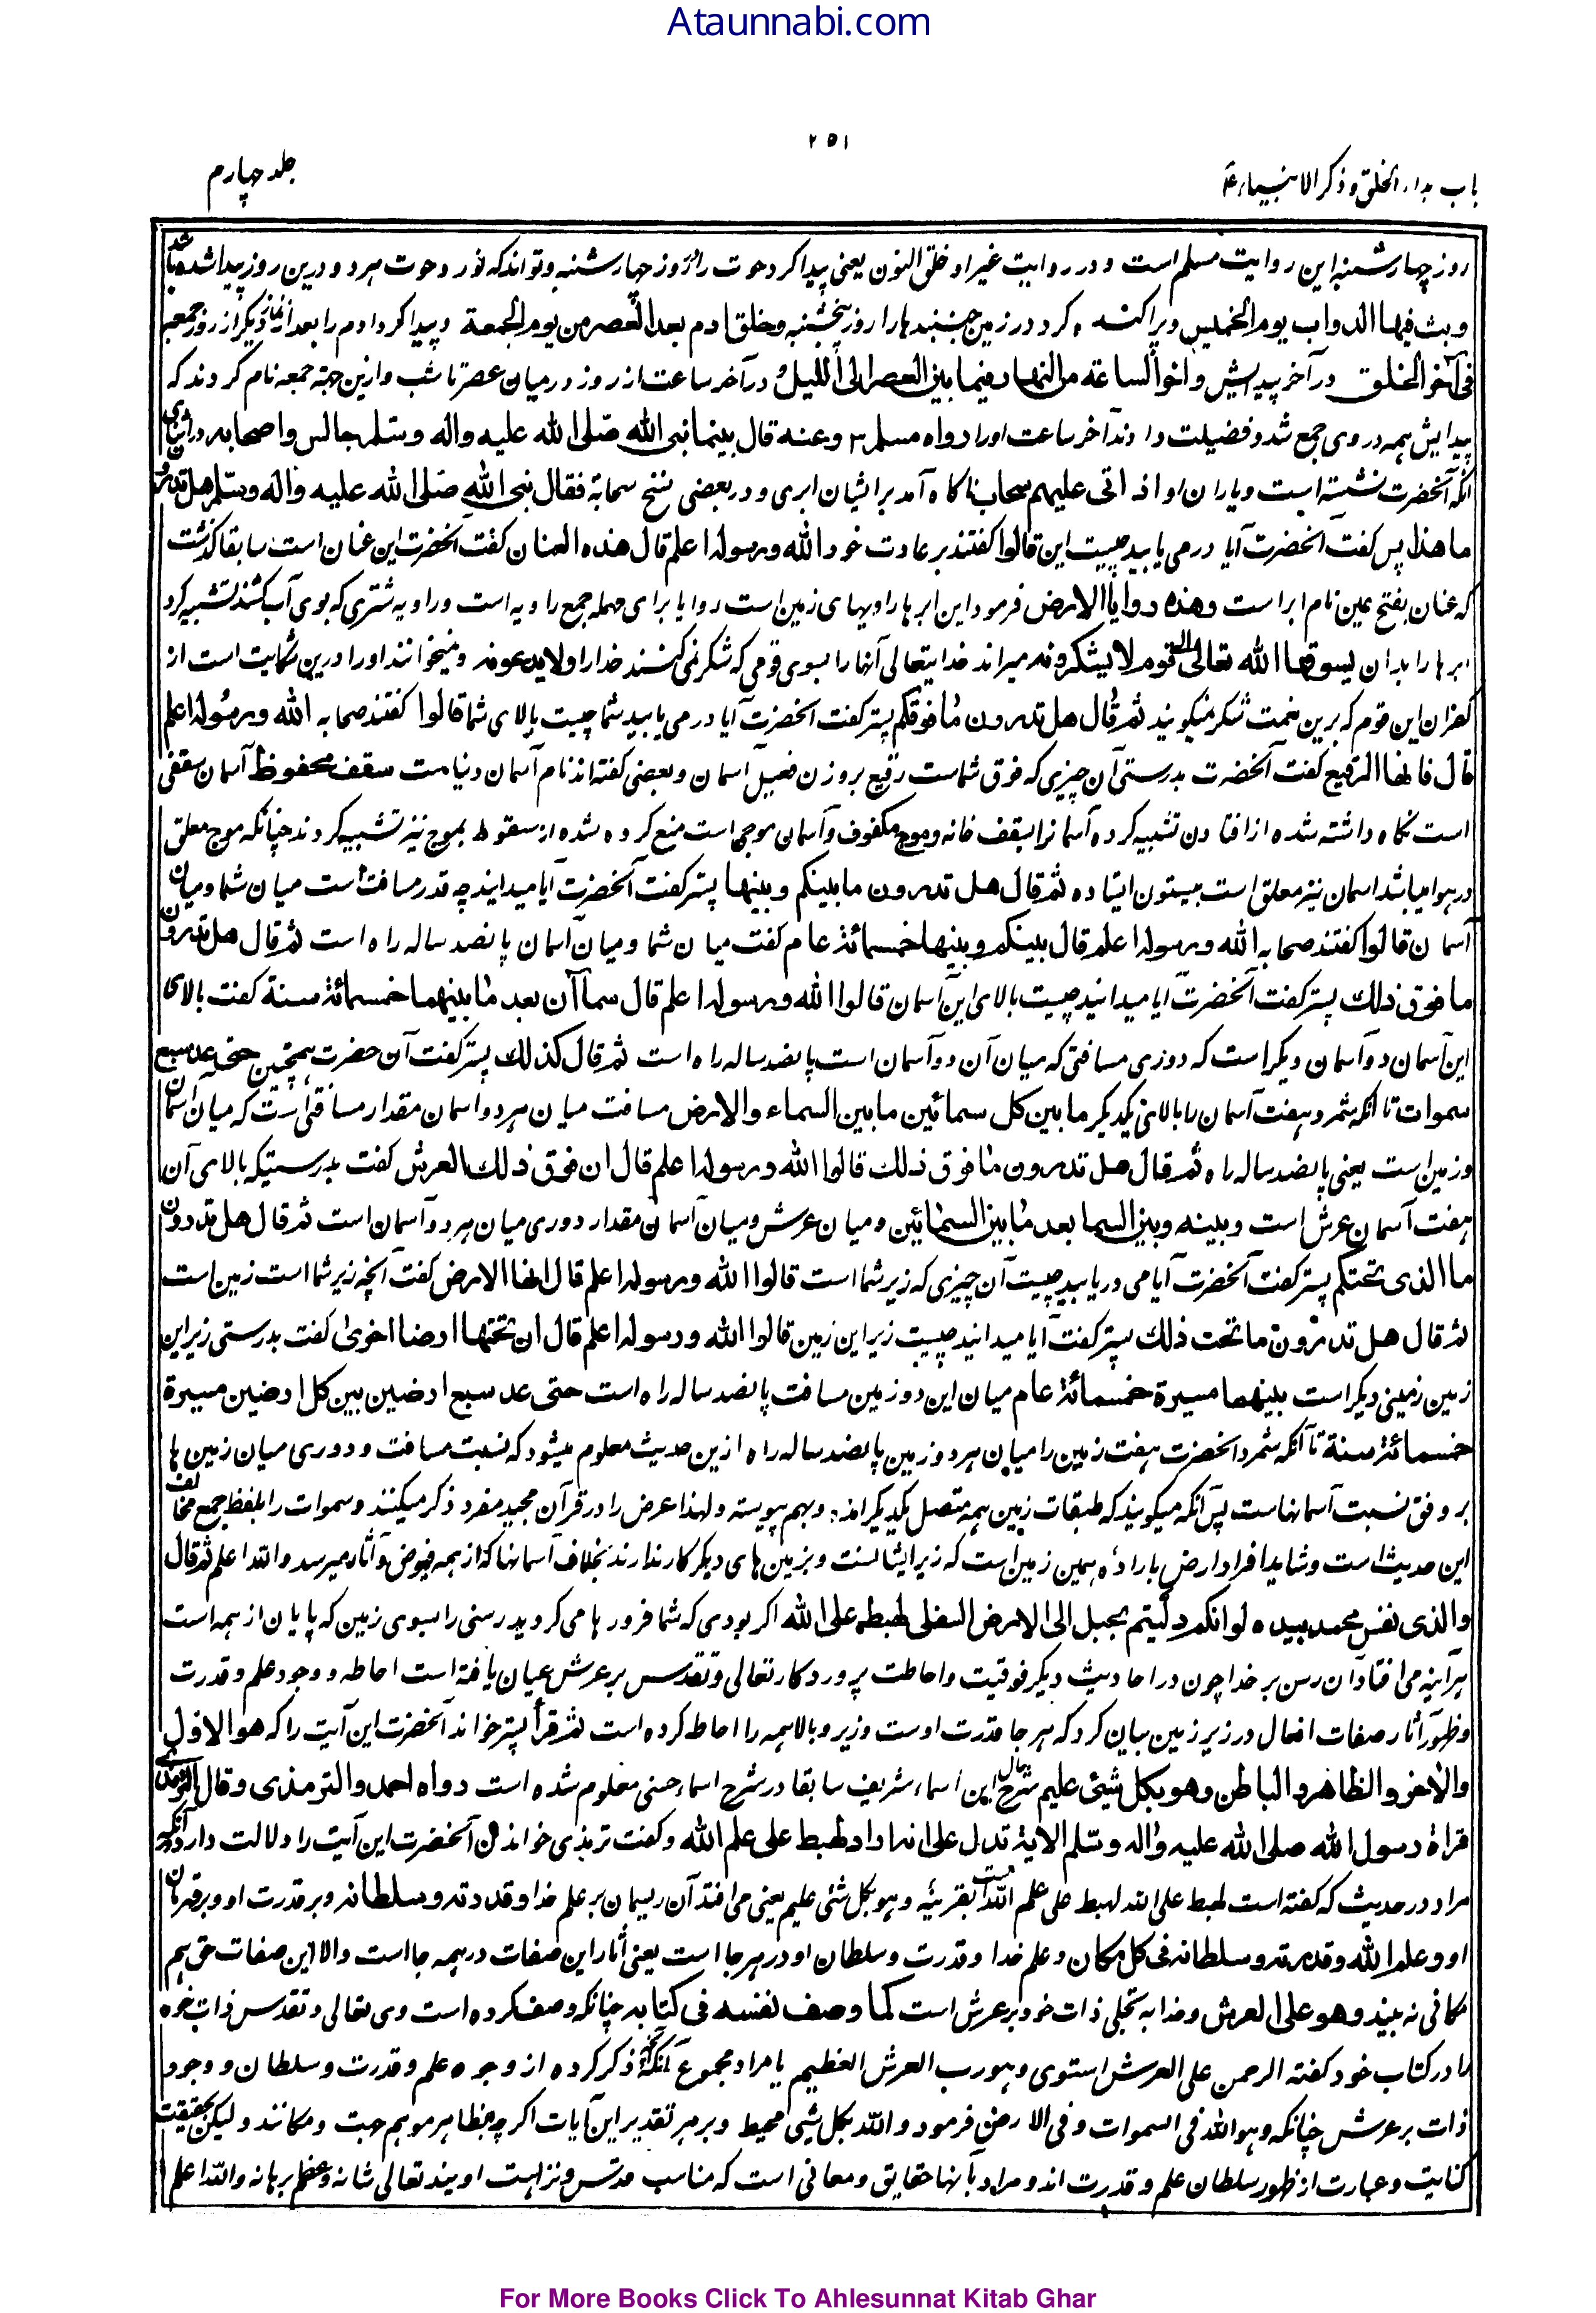 Ataunnabi.com
۲۵۱
باب بداء الخلق و ذکر الانبیاء ع
جلد چهارم
روز چهارشنبه این روایت مسلم است و در روایت غیر او خلق النون یعنی پیدا کرد حوت را روز چهارشنبه و تواند که نور و حوت هر دو درین روز پیدا شده باشد
و بث فیها الدواب یوم الخمیس و پراکنده کرد در زمین جنبنده ها را روز پنجشنبه و خلق ادم بعد العصر من یوم الجمعة و پیدا کرد ادم را بعد از نماز دیگر از روز جمعه
فی آخر الخلق در آخر پیدایش و اخر الساعة من النهار فیما بین العصر الی اللیل در آخر ساعت از روز در میان عصر تا شب و ازین جهة جمعه نام کردند که
پیدایش همه در وی جمع شد و فضیلت دادند آخر ساعت او را رواه مسلم ۳ وعنه قال بینما نبی الله صلی الله علیه واله وسلم جالس واصحابه در اثنای
آنکه آنحضرت نشسته است و یاران او اذ اتی علیهم سحاب ناگاه آمد بر ایشان ابری و در بعضی نسخ سحابة فقال نبی الله صلی الله علیه واله وسلم هل تدرون
ما هذا پس گفت آنحضرت آیا در می یابید چیست این قالوا گفتند بر عادت خود الله ورسوله اعلم قال هذه العنان گفت آنحضرت این عنان است سابقا گذشت
که عنان بفتح عین نام ابر است وهذه روایا الارض فرمود این ابرها راویهای زمین است روایا برای مهمله جمع راویه است و راویه شتری که بوی آب کشند تشبیه کرد
ابرها را بدان یسوقها الله تعالی الی قوم لا یشکرونه میراند خدایتعالی آنها را بسوی قومی که شکر نمی کنند خدا را ولا یدعونه و نمیخوانند او را درین شکایت است از
کفران این قوم که برین نعمت شکر نمیگویند ثم قال هل تدرون ما فوقکم پستر گفت آنحضرت آیا در می یابید شما چیست بالای شما قالوا گفتند صحابه الله ورسوله اعلم
قال فانها الرقیع گفت آنحضرت بدرستی آن چیزی که فوق شماست رقیع بر وزن فعیل آسمان و بعضی گفته اند نام آسمان دنیاست سقف محفوظ آسمان سقفی
است نگاه داشته شده از افتادن تشبیه کرده آسمانرا بسقف خانه وموج مکفوف و آسمان موجی است منع کرده شده از سقوط بموج نیز تشبیه کردند چنانکه موج معلق
در هوا میباشد اسمان نیز معلق است بیستون ایستاده ثم قال هل تدرون ما بینکم وبینها پستر گفت آنحضرت آیا میدانید چه قدر مسافت است میان شما و میان
آسمان قالوا گفتند صحابه الله ورسوله اعلم قال بینکم وبینها خمسمائة عام گفت میان شما و میان اسمان پانصد ساله راه است ثم قال هل تدرون
ما فوق ذلك پستر گفت آنحضرت آیا میدانید چیست بالای این آسمان قالوا الله ورسوله اعلم قال سماآن بعد ما بینهما خمسمائة سنة گفت بالای
این آسمان دو آسمان دیگر است که دوری مسافتی که میان آن دو آسمان است پانصد ساله راه است ثم قال کذلك پستر گفت آن حضرت همچنین حتی عد سبع
سموات تا آنکه شمرد هفت آسمان را بالای یکدیگر ما بین کل سمائین ما بین السماء والارض مسافت میان هر دو اسمان مقدار مسافتی است که میان آسمان
و زمین است یعنی پانصد ساله راه ثم قال هل تدرون ما فوق ذلك قالوا الله ورسوله اعلم قال ان فوق ذلك العرش گفت بدرستیکه بالای آن
هفت آسمان عرش است وبینه وبین السما بعد ما بین السمائین و میان عرش و میان آسمان مقدار دوری میان هر دو آسمان است ثم قال هل تدرون
ما الذی تحتکم پستر گفت آنحضرت آیا می دریابید چیست آن چیزی که زیر شما است قالوا الله ورسوله اعلم قال انها الارض گفت آنچه زیر شما است زمین است
ثم قال هل تدرون ما تحت ذلك پستر گفت آیا میدانید چیست زیر این زمین قالوا الله ورسوله اعلم قال ان تحتها ارضا اخری گفت بدرستی زیر این
زمین زمینی دیگر است بینهما مسیرة خمسمائة عام میان این دو زمین مسافت پانصد ساله راه است حتی عد سبع ارضین بین کل ارضین مسیرة
خمسمائة سنة تا آنکه شمرد آنحضرت هفت زمین را میان هر دو زمین پانصد ساله راه ازین حدیث معلوم میشود که نسبت مسافت و دوری میان زمین ها
بر وفق نسبت آسمانهاست پس آنکه میگویند که طبقات زمین همه متصل یکدیگر اند و بهم پیوسته و لهذا عرض را در قرآن مجید مفرد ذکر میکنند و سموات را بلفظ جمع مخالف
این حدیث است و شاید افراد ارض باراده همین زمین است که زیر ایشانست و بزمین های دیگر کار ندارند بخلاف آسمانها که از همه فیوض و آثار میرسد والله اعلم ثم قال
والذی نفس محمد بیده لو انکم دلیتم بحبل الی الارض السفلی لهبط علی الله اگر بودی که شما فرو رها می کردید رسنی را بسوی زمین که پایان از همه است
هر آینه می افتاد آن رسن بر خدا چون در احادیث دیگر فوقیت و احاطت پروردگار تعالی و تقدس بر عرش عیان یافته است احاطه و وجود علم و قدرت
و ظهور آثار صفات افعال در زیر زمین بیان کرد که هر جا قدرت اوست و زیر و بالا همه را احاطه کرده است ثم قرأ پستر خواند آنحضرت این آیت را که هو الاول
والاخر والظاهر والباطن وهو بکل شیئ علیم شرح این اسماء شریف سابقا در شرح اسماء حسنی معلوم شده است رواه احمد والترمذی وقال الترمذی
قراءة رسول الله صلی الله علیه واله وسلم الایة تدل علی انه اراد لهبط علی علم الله و گفت ترمذی خواندن آنحضرت این آیت را دلالت دارد بر آنکه
مراد در حدیث که گفته است لهبط علی الله لهبط علی علم الله است بقرینه و هو بکل شئی علیم یعنی می افتد آن ریسمان بر علم خدا وقدرته وسلطانه و بر قدرت او و بر قهرمان
او وعلم الله وقدرته وسلطانه فی کل مکان و علم خدا و قدرت و سلطان او در هر جا است یعنی آثار این صفات در همه جا است والا این صفات حق هم
مکانی نه بیند وهو علی العرش و خدا به تجلی ذات خود بر عرش است کما وصف نفسه فی کتابه چنانکه وصف کرده است وی تعالی و تقدس ذات خود
را در کتاب خود گفته الرحمن علی العرش استوی و هو رب العرش العظیم یا مراد مجموع آنکه ذکر کرده از وجوه علم و قدرت و سلطان و وجود
ذات بر عرش چنانکه و هو الله فی السموات و فی الارض فرمود و الله بکل شیئ محیط و بر هر تقدیر این آیات اگر چه بظاهر موهم جهت و مکانند و لیکن بحقیقت
کنایت و عبارت از ظهور سلطان علم و قدرت اند و مراد بآنها حقایق و معانی است که مناسب قدس و نزاهت اویند تعالی شانه و عظم برهانه والله اعلم
For More Books Click To Ahlesunnat Kitab Ghar